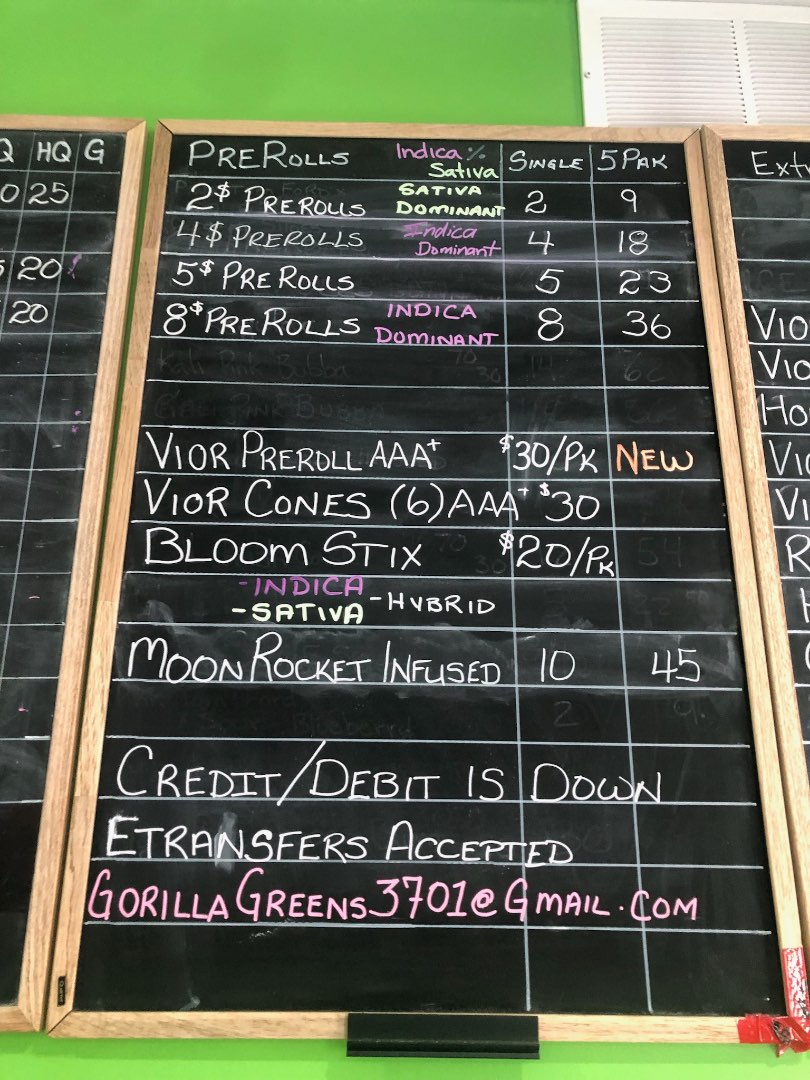 Q HQ G
0 25
20
20
PREROLLS Indica % Sativa SINGLE 5 PAK
2$ PREROLLS SATIVA DOMINANT 2 9
4$ PREROLLS Indica Dominant 4 18
5$ PRE ROLLS 5 23
8$ PRE ROLLS INDICA DOMINANT 8 36
Kali Pink Bubba
VIOR PREROLL AAA+ $30/PK NEW
VIOR CONES (6) AAA+ $30
BLOOM STIX $20/PK
-INDICA
-SATIVA -HYBRID
MOON ROCKET INFUSED 10 45
2 9
CREDIT/DEBIT IS DOWN
ETRANSFERS ACCEPTED
GORILLAGREENS3701@GMAIL.COM